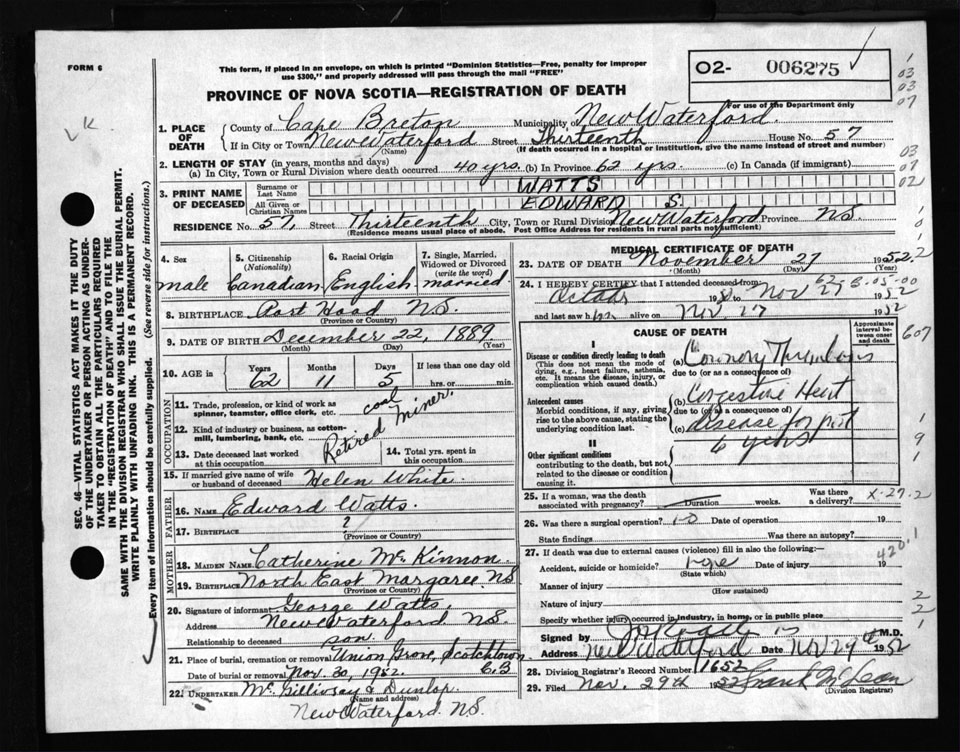 FORM 6
This form, if placed in an envelope, on which is printed "Dominion Statistics—Free, penalty for improper
use $300," and properly addressed will pass through the mail "FREE"
02- 006275
For use of the Department only
PROVINCE OF NOVA SCOTIA—REGISTRATION OF DEATH
1. PLACE OF DEATH
County of Cape Breton Municipality of New Waterford.
If in City or Town New Waterford Street Thirteenth House No. 57
(Name) (If death occurred in a hospital or institution, give the name instead of street and number)
2. LENGTH OF STAY (in years, months and days)
(a) In City, Town or Rural Division where death occurred 40 yrs. (b) In Province 62 yrs. (c) In Canada (if immigrant)
3. PRINT NAME OF DECEASED
Surname or Last Name WATTS
All Given or Christian Names EDWARD S.
RESIDENCE No. 57, Street Thirteenth City, Town or Rural Division New Waterford Province N.S.
(Residence means usual place of abode. Post Office Address for residents in rural parts not sufficient)
4. Sex male
5. Citizenship (Nationality) Canadian
6. Racial Origin English
7. Single, Married, Widowed or Divorced (write the word) married
8. BIRTHPLACE Port Hood N.S.
(Province or Country)
9. DATE OF BIRTH December 22, 1889
(Month) (Day) (Year)
10. AGE in Years 62 Months 11 Days 5 If less than one day old hrs. or min.
OCCUPATION
11. Trade, profession, or kind of work as spinner, teamster, office clerk, etc. coal miner,
12. Kind of industry or business, as cotton-mill, lumbering, bank, etc.
Retired
13. Date deceased last worked at this occupation
14. Total yrs. spent in this occupation
15. If married give name of wife or husband of deceased Helen White.
FATHER
16. Name Edward Watts.
17. Birthplace ?
(Province or Country)
MOTHER
18. Maiden Name Catherine McKinnon.
19. Birthplace North East Margaree. N.S.
(Province or Country)
20. Signature of informant George Watts,
Address New Waterford N.S.
Relationship to deceased son.
21. Place of burial, cremation or removal Union Grove, Scotchtown C.B
Date of burial or removal Nov. 30, 1952.
22. Undertaker McGillivray & Dunlop.
(Name and address)
New Waterford. N.S.
MEDICAL CERTIFICATE OF DEATH
23. DATE OF DEATH November 27 1952
(Month) (Day) (Year)
24. I HEREBY CERTIFY that I attended deceased from
to Nov 27 1952
and last saw him alive on Nov 27 1952
CAUSE OF DEATH
Approximate interval between onset and death
I
Disease or condition directly leading to death
(This does not mean the mode of dying, e.g., heart failure, asthenia, etc. It means the disease, injury, or complication which caused death.)
(a) Coronary Thrombosis
due to (or as a consequence of)
Antecedent causes
Morbid conditions, if any, giving rise to the above cause, stating the underlying condition last.
(b) Congestive Heart
due to (or as a consequence of)
(c) disease for past
6 years
II
Other significant conditions
contributing to the death, but not related to the disease or condition causing it.
25. If a woman, was the death associated with pregnancy? Duration weeks. Was there a delivery?
26. Was there a surgical operation? no Date of operation 19
State findings Was there an autopsy?
27. If death was due to external causes (violence) fill in also the following:—
Accident, suicide or homicide? Date of injury 19
(State which)
Manner of injury
(How sustained)
Nature of injury
Specify whether injury occurred in industry, in home, or in public place
Signed by M.D.
Address New Waterford Date Nov 29th 1952
28. Division Registrar's Record Number 1652
29. Filed Nov. 29th 1952 Frank McLean
(Division Registrar)
SEC. 46—VITAL STATISTICS ACT MAKES IT THE DUTY
OF THE UNDERTAKER OR PERSON ACTING AS UNDER-
TAKER TO OBTAIN ALL THE PARTICULARS REQUIRED
IN THE "REGISTRATION OF DEATH" AND TO FILE THE
SAME WITH THE DIVISION REGISTRAR WHO SHALL ISSUE THE BURIAL PERMIT.
WRITE PLAINLY WITH UNFADING INK. THIS IS A PERMANENT RECORD.
Every item of information should be carefully supplied. (See reverse side for instructions.)
1
03
03
07
03
07
02
607
X-27.2
420.1
2
2